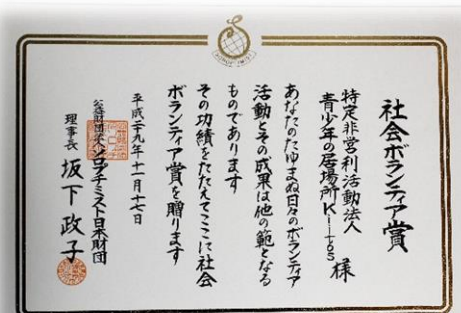 社会ボランティア賞
特定非営利活動法人
青少年の居場所Kiitos 様
あなたのたゆまぬ日々のボランティア
活動とその成果は他の範となる
ものであります
その功績をたたえてここに社会
ボランティア賞を贈ります
平成二十九年十一月十七日
公益財団法人ソロプチミスト日本財団
理事長 坂下政子